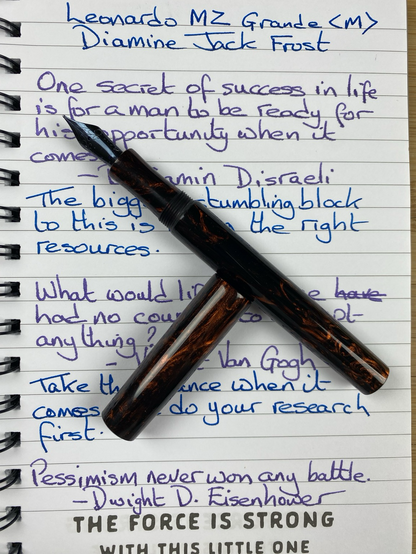 Leonardo MZ Grande <M>
Diamine Jack Frost
One secret of success in life
is for a man to be ready for
his opportunity when it
comes
- Disraeli
The stumbling block
to this is the right
resources.
What would have
had no
anything?
- Van Gogh
Take when it
comes do your research
first.
Pessimism never won any battle.
- Dwight D. Eisenhower
THE FORCE IS STRONG
WITH THIS LITTLE ONE